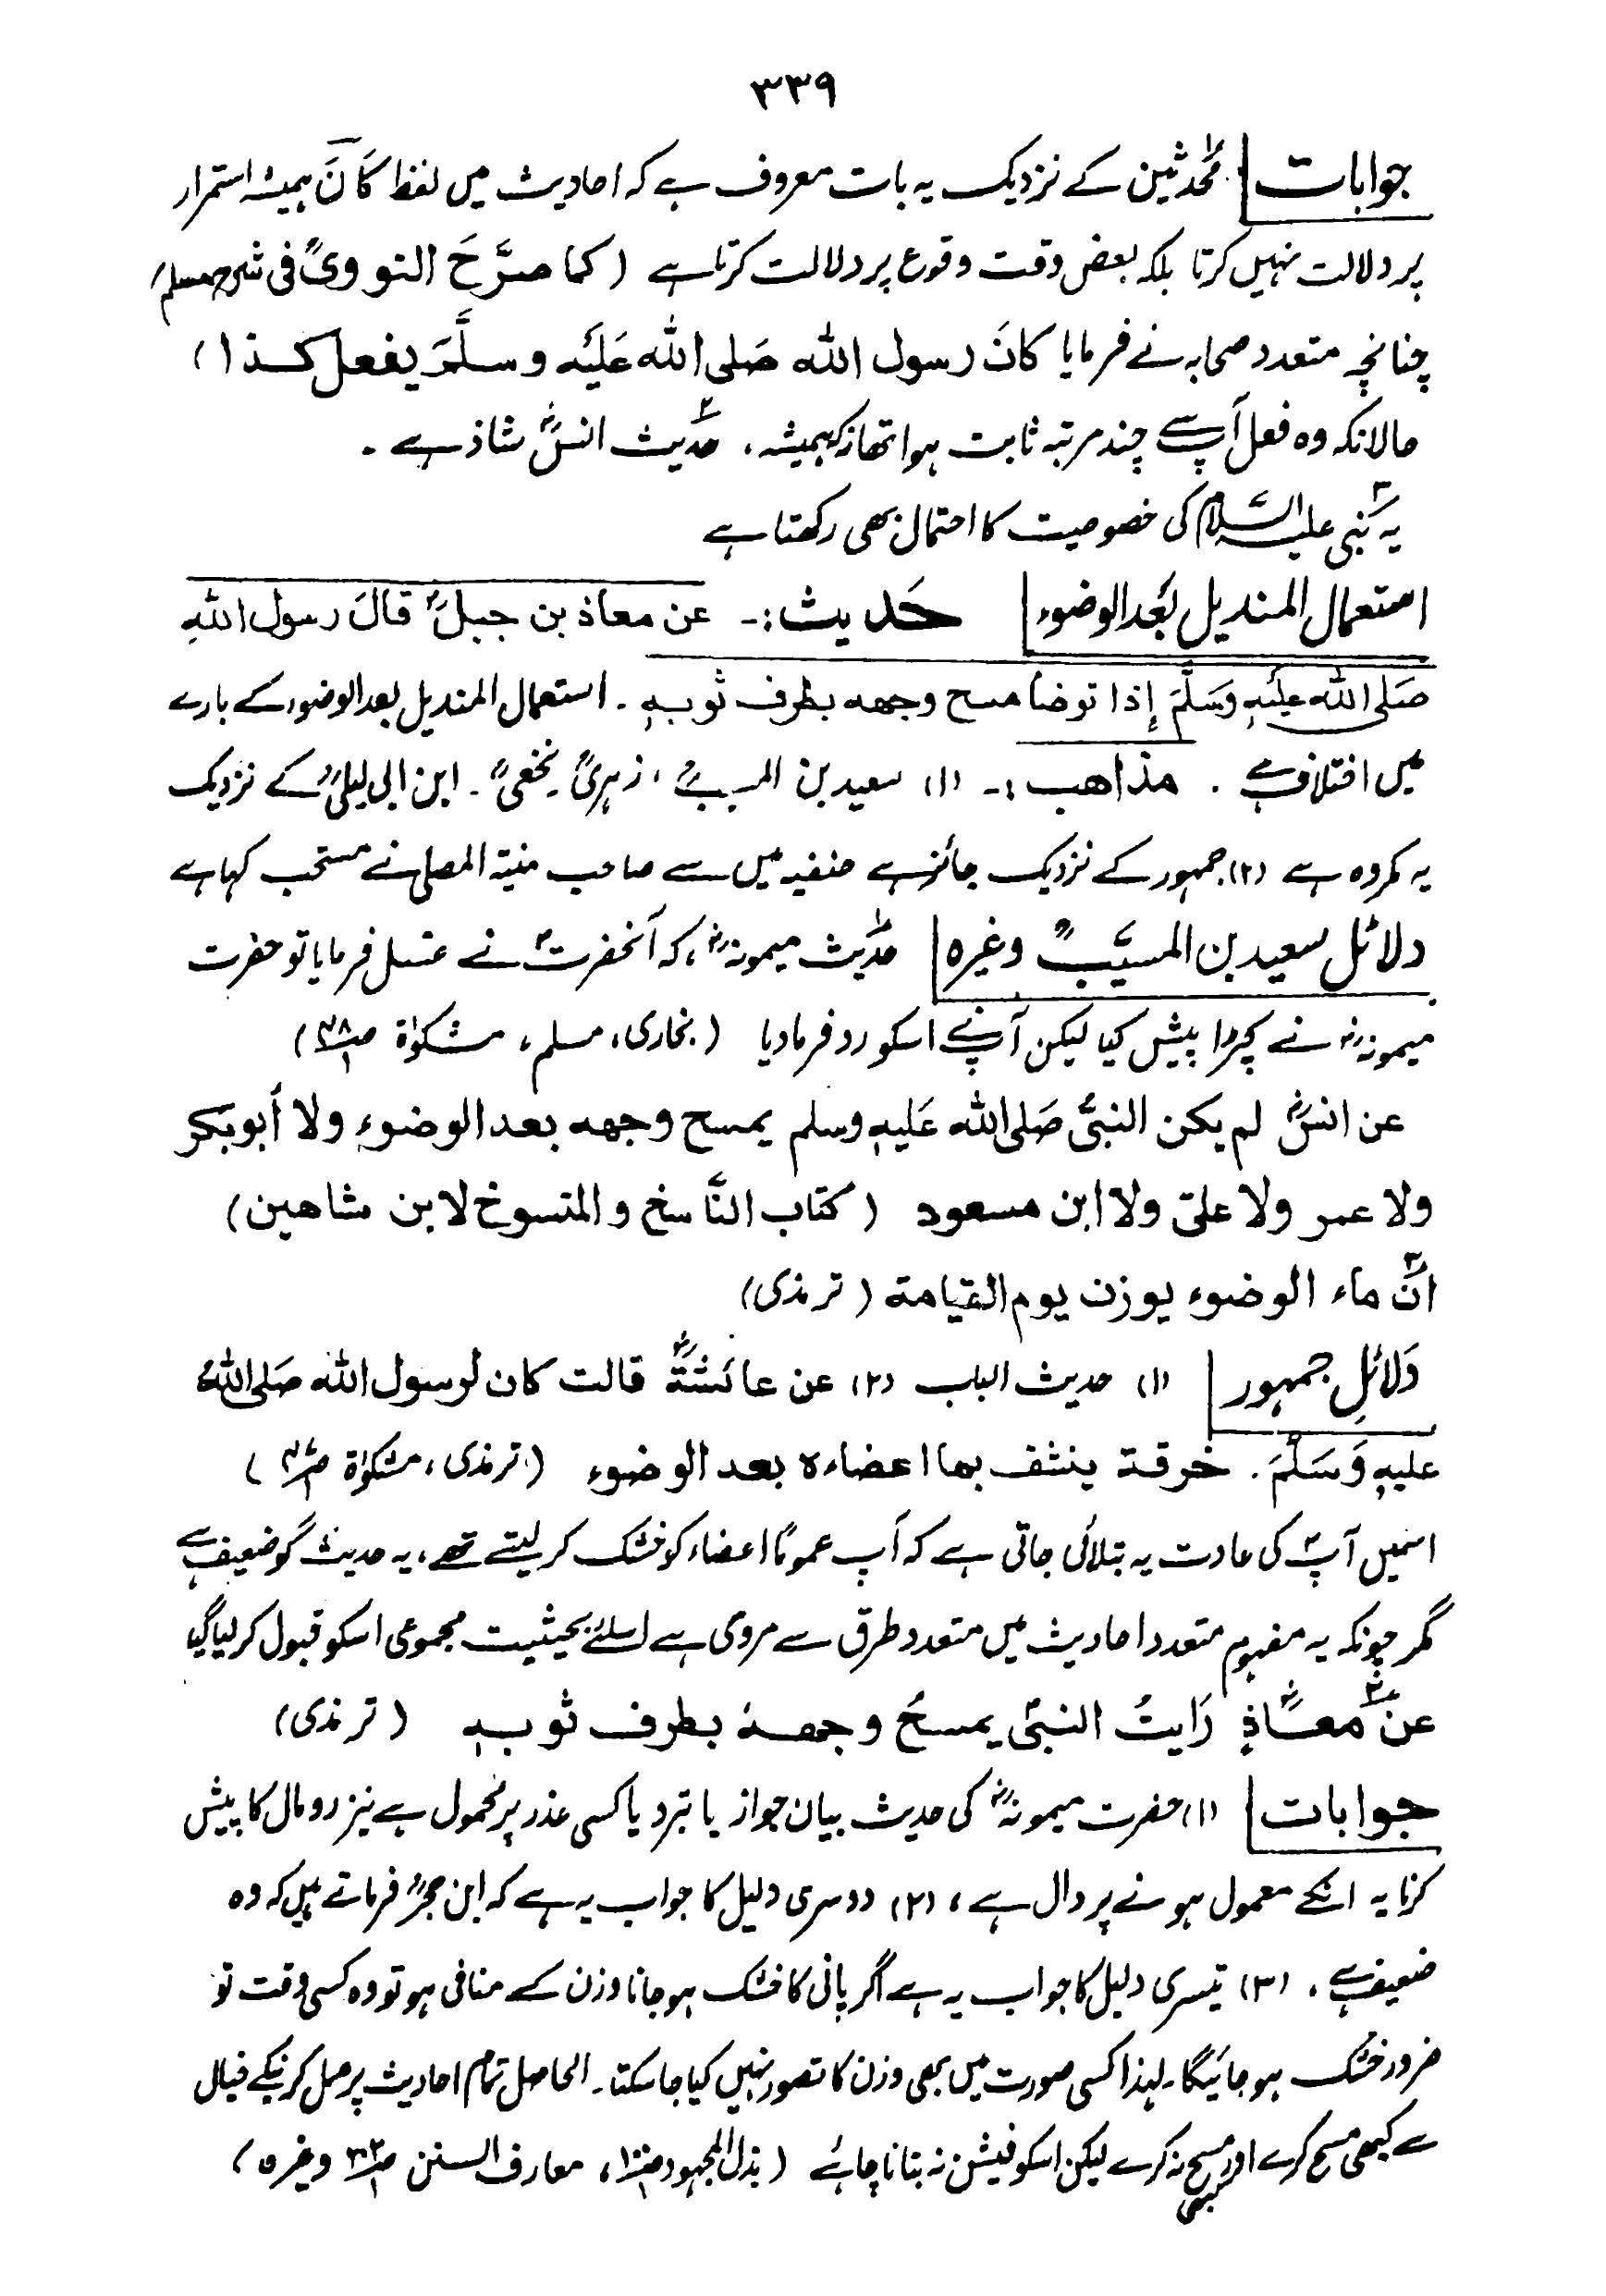 ۳۳۹
جوابات ۱ محدثین کے نزدیک یہ بات معروف ہے کہ احادیث میں لفظ کَانَ ہمیشہ استمرار
پر دلالت نہیں کرتا بلکہ بعض وقت وقوع پر دلالت کرتا ہے (کما صرَّحَ النوویؒ فی شرح مسلم)
چنانچہ متعدد صحابہ نے فرمایا کانَ رسول اللہ صَلی اللہ عَلَیہ وسلَّمَ یفعل کذا ()
حالانکہ وہ فعل آپ سے چند مرتبہ ثابت ہوا تھا نہ کہ ہمیشہ، ۲ حدیث انسؓ شاذ ہے ۔
۳ یہ نبی علیہ السلام کی خصوصیت کا احتمال بھی رکھتا ہے
استعمال المندیل بعد الوضوء حَدیث :۔ عن معاذ بن جبلؓ قالَ رسول اللہِ
صَلی اللہ علیہِ وَسَلَّمَ إذا توضأ مسح وجھہ بطرف ثوبہٖ ۔ استعمال المندیل بعد الوضوء کے بارے
میں اختلاف ہے ۔ مذاھب :۔ (۱) سعید بن المسیبؒ ، زہریؒ نخعیؒ ۔ ابن ابی لیلیٰؒ کے نزدیک
یہ مکروہ ہے (۲) جمہور کے نزدیک جائز ہے حنفیہ میں سے صاحب منیۃ المصلی نے مستحب کہا ہے
دلائل سعید بن المسیَّبؒ وغیرہ ۱ حدیث میمونہؓ ، کہ آنحضرتؐ نے غسل فرمایا تو حضرت
میمونہؓ نے کپڑا پیش کیا لیکن آپ نے اسکو رد فرمادیا (بخاری، مسلم، مشکوٰۃ ص۴۸)
عن انسؓ لم یکن النبیُّ صَلی اللہ عَلیہِ وسلم یمسح وجھہ بعد الوضوء ولا أبوبکر
ولا عمر ولا علیّ ولا ابن مسعود (کتاب النَّاسخ والمنسوخ لابن شاھین)
۳ انّ ماء الوضوء یوزن یوم القیامۃ (ترمذی)
دَلائلِ جمہور (۱) حدیث الباب (۲) عن عائشۃؓ قالت کان لرسول اللہ صَلی اللہُ
علیہِ وَسَلَّمَ ۔ خرقۃ ینشف بھا اعضاءہ بعد الوضوء (ترمذی، مشکوٰۃ)
اسمیں آپؐ کی عادت یہ بتلائی جاتی ہے کہ آپ عموماً اعضاء کو خشک کرلیتے تھے، یہ حدیث گو ضعیف ہے
مگر چونکہ یہ مفہوم متعدد احادیث میں متعدد طرق سے مروی ہے اسلئے بحیثیت مجموعی اسکو قبول کرلیا گیا
۳ عن معاذٍؓ رَایتُ النبیَّ یمسحُ وجھہٗ بطرف ثوبہٖ (ترمذی)
جوابات (۱) حضرت میمونہؓ کی حدیث بیان جواز یا تبرد یا کسی عذر پر محمول ہے نیز رومال کا پیش
کرنا یہ انکے معمول ہونے پر دال ہے، (۲) دوسری دلیل کا جواب یہ ہے کہ ابن حجرؒ فرماتے ہیں کہ وہ
ضعیف ہے، (۳) تیسری دلیل کا جواب یہ ہے اگر پانی کا خشک ہوجانا وزن کے منافی ہو تو وہ کسی وقت تو
ضرور خشک ہوجائیگا۔ لہٰذا کسی صورت میں بھی وزن کا تصور نہیں کیا جاسکتا۔ الحاصل تمام احادیث پر عمل کرنیکے خیال
سے کبھی مسح کرے اور کبھی مسح نہ کرے لیکن اسکو فیشن نہ بنانا چاہئے (بذل المجہود، معارف السنن وغیرہ)